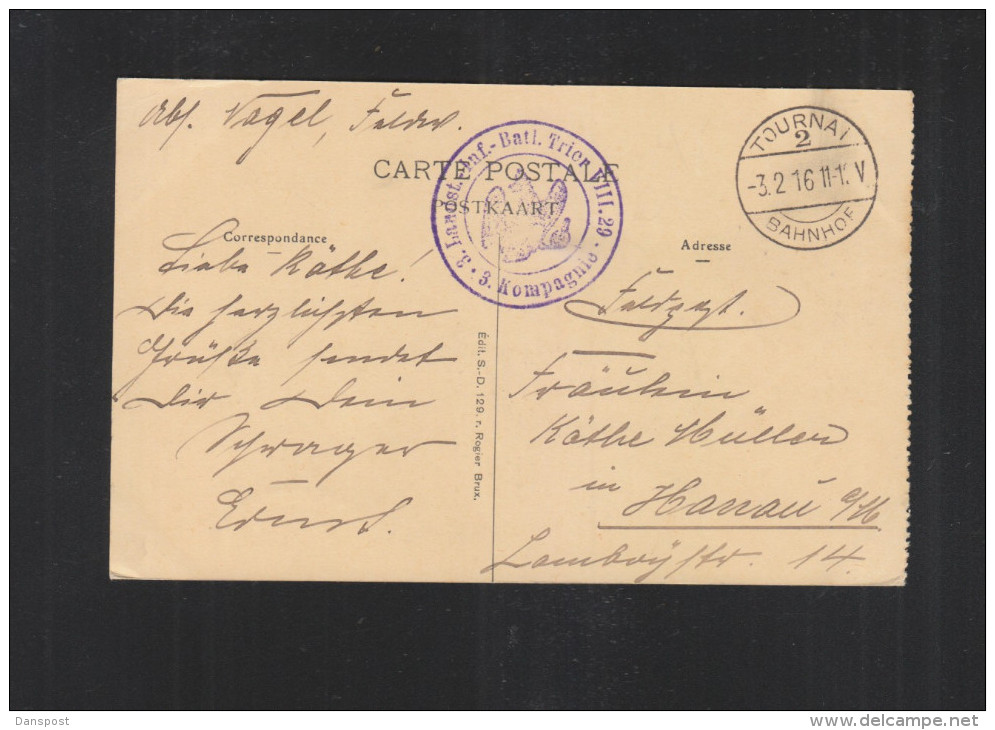 Abs. Vogel, Feldw.
CARTE POSTALE
POSTKAART
2. Landst. Inf.-Batl. Trier VIII. 29.
3. Kompagnie
TOURNAI
2
-3.2 16 11-1. V
BAHNHOF
Correspondance
Adresse
Liebe Käthe!
Die herzlichsten
Grüße sendet
Dir Dein
Schwager
Ernst.
Édit. S.-D. 129. r. Rogier Brux.
Feldpost.
Fräulein
Käthe Müller
in
Hanau a/M
Lamboystr. 14.
Danspost
www.delcampe.net